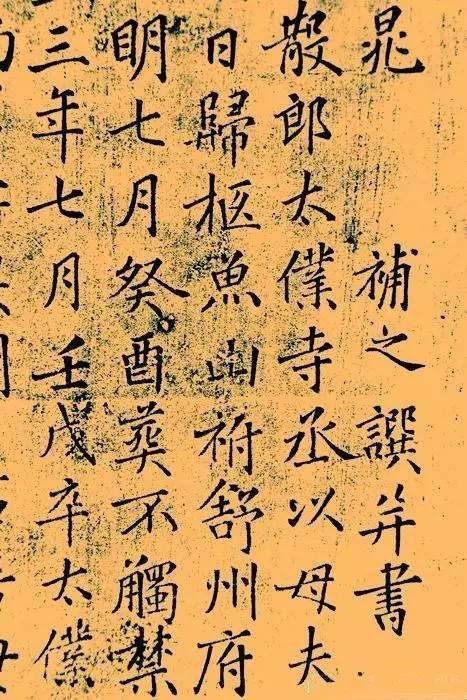 晁 補之譔并書
散郎太僕寺丞以母夫
日歸柩魚山祔舒州府
明七月癸酉葬不觸禁
三年七月壬戌卒太僕